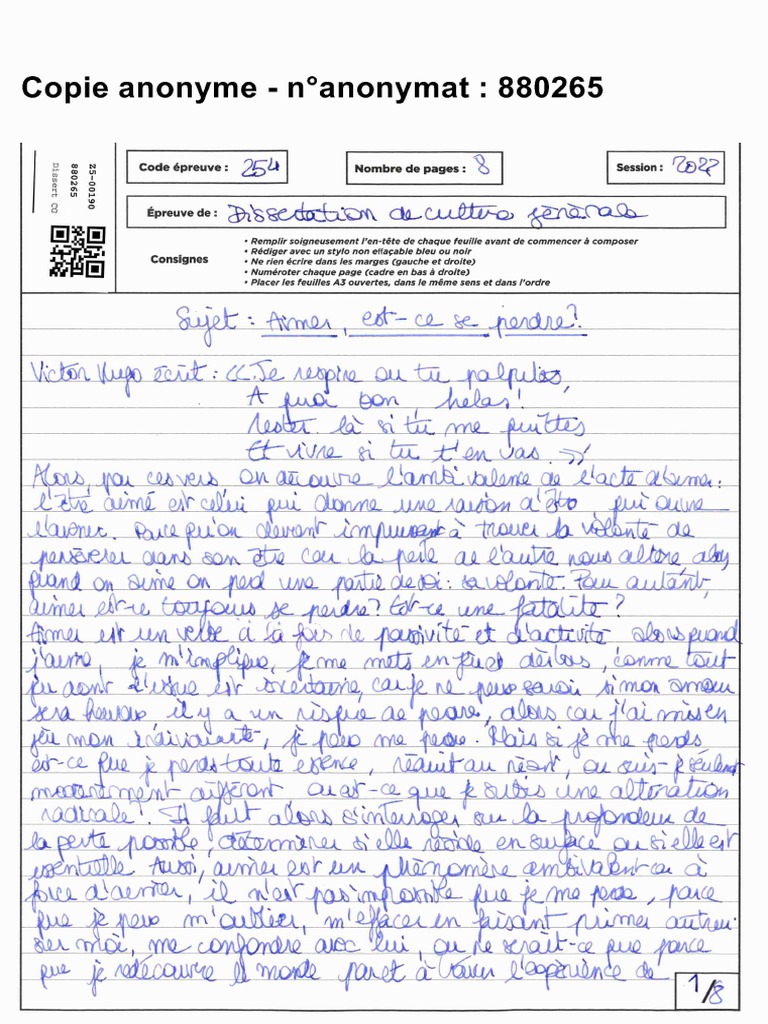 Copie anonyme - n°anonymat : 880265
Z5-00190
880265
Dissert CG
Code épreuve : 254
Nombre de pages : 8
Session : 2022
Épreuve de : Dissertation de culture générale
Consignes
• Remplir soigneusement l'en-tête de chaque feuille avant de commencer à composer
• Rédiger avec un stylo non effaçable bleu ou noir
• Ne rien écrire dans les marges (gauche et droite)
• Numéroter chaque page (cadre en bas à droite)
• Placer les feuilles A3 ouvertes, dans le même sens et dans l'ordre
Sujet : Aimer, est-ce se perdre?
Victor Hugo écrit : << Je respire ou tu palpites,
A quoi bon, helas!
rester là si tu me quittes
Et vivre si tu t'en vas. >>
Alors, par ces vers on découvre l'ambivalence de l'acte d'aimer:
l'être aimé est celui qui donne une raison d'être qui ouvre
l'avenir. Parce qu'on devient impuissant à trouver la volonté de
persévérer dans son être car la perte de l'autre nous altère, alors
quand on aime on perd une partie de soi : sa volonté. Pour autant,
aimer est-ce toujours se perdre? Est-ce une fatalité?
Aimer est un verbe à la fois de passivité et d'activité alors quand
j'aime, je m'implique, je me mets en jeu dès lors, comme tout
jeu dont l'issue est incertaine, car je ne peux savoir si mon amour
sera heureux il y a un risque de perdre, alors car j'ai mis en
jeu mon individualité, je peux me perdre. Mais si je me perds
est-ce que je perds toute essence, réduit au néant, ou suis-je seulement
modérément différent ou est-ce que je subis une altération
radicale? Il faut alors s'interroger sur la profondeur de
la perte possible, déterminer si elle réside en surface ou si elle est
essentielle Aussi, aimer est un phénomène ambivalent car à
force d'aimer, il n'est pas impossible que je me perde, parce
que je peux m'oublier, m'effacer en faisant primer autrui
sur moi, me confondre avec lui, ou ne serait-ce que parce
que je redécouvre le monde à travers l'expérience de
1/8